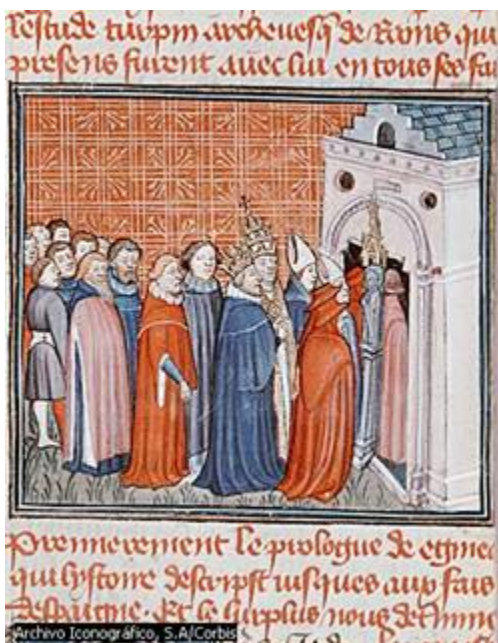 lestude turpin archeuesq de Rains qui
presens furent auec lui en tous ses fai
Premierement le prologue de eginec
qui lystoire descripst iusques aux fais
despaigne. Et le surplus nous determine
Archivo Iconográfico, S.A/Corbis